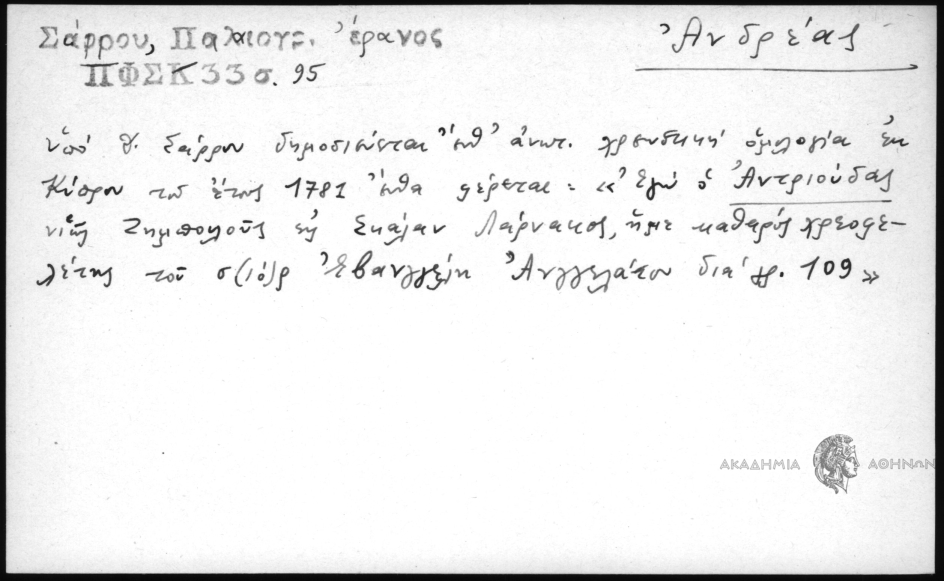 Σάρρου, Παλαιογρ. ἔρανος
ΠΦΣΚ 33 σ. 95
Ἀνδρέας
ὑπό Δ. Σάρρου δημοσιεύεται ἔνθ' ἀνωτ. χρεωστική ὁμολογία ἐκ
Κύπρου τοῦ ἔτους 1781 ἔνθα φέρεται: «Ἐγώ ὁ Ἀντριούδας
υἱός Σκάλαν Λάρνακος, ἦμε καθαρός χρεοφε-
λέτης τοῦ σ(ιό)ρ Ἐβανγγέλη Ἀνγγελάτου διά γρ. 109»
ΑΚΑΔΗΜΙΑ ΑΘΗΝΩΝ